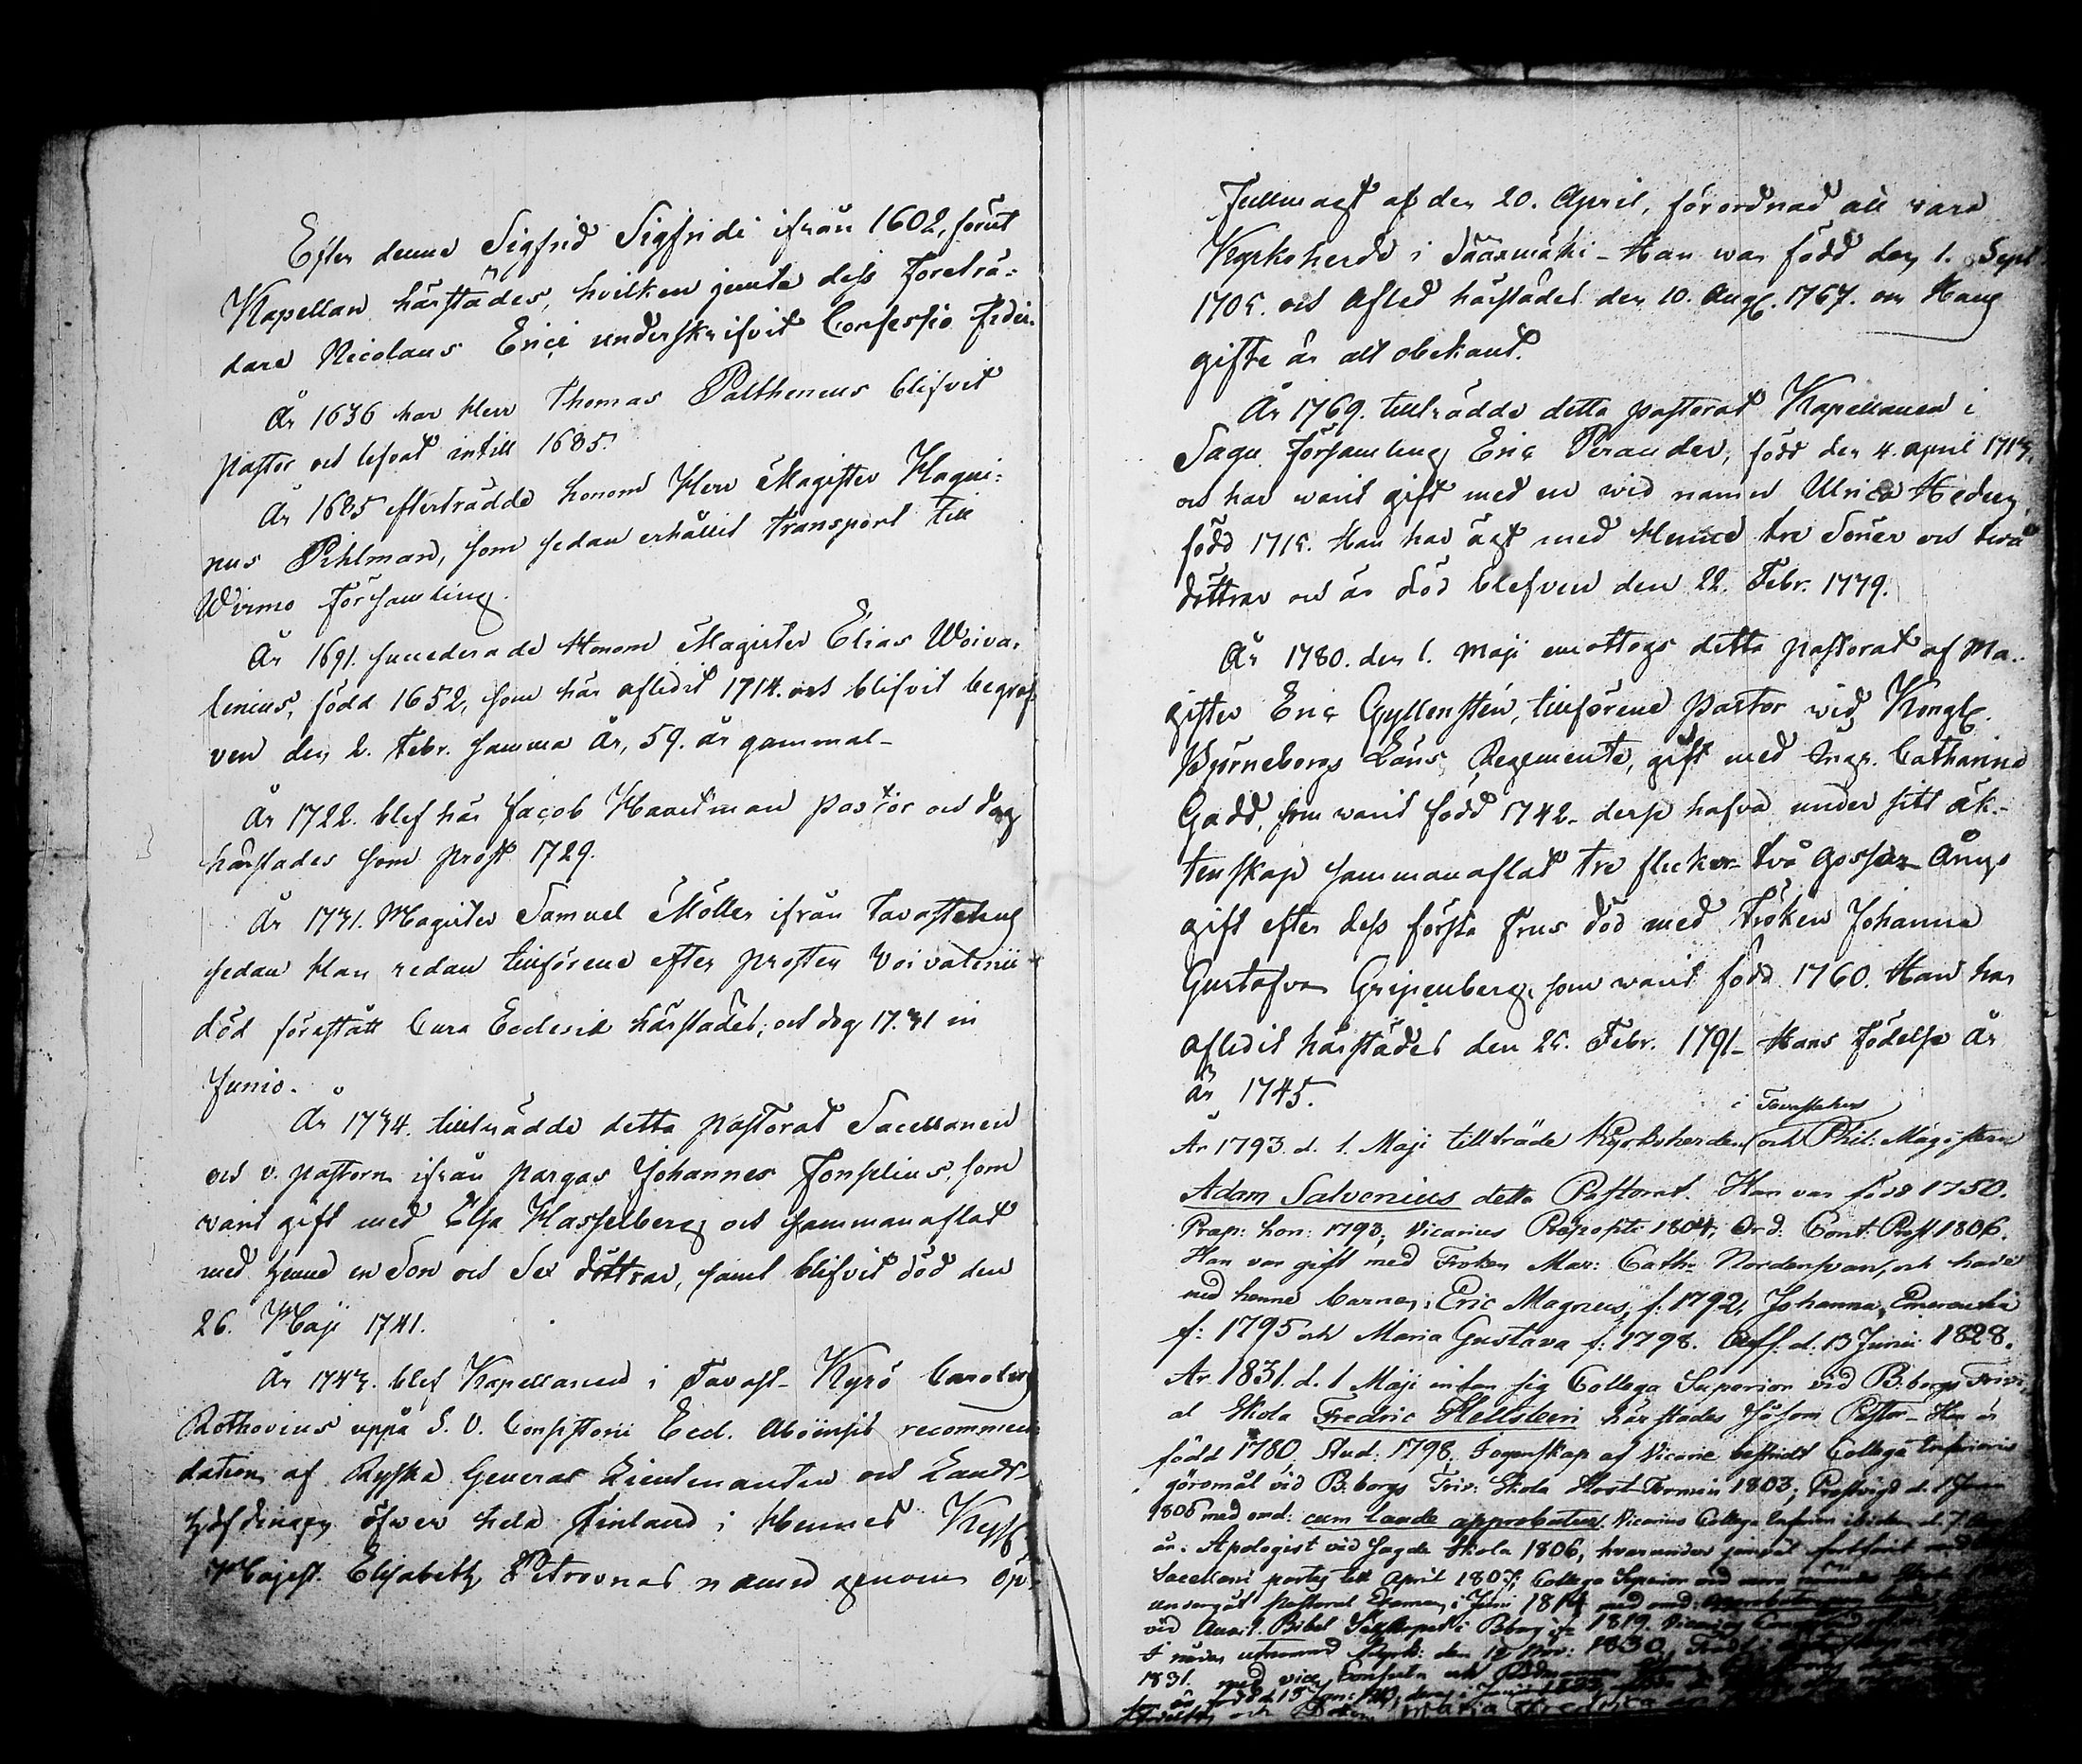 Efter denne Sigfrid Sigfridi ifrån 1602, förut
Kapellan härstädes, hvilken jemte dess Företrä-
dare Nicolaus Erici underskrifvit Confessio Fidei.
År 1636 har Herr Thomas Paltheneus blifvit
pastor och lefvat intill 1685.
År 1685 efterträdde honom Herr Magister Haqui-
nus Pihlman, som sedan erhållit transport till
Wirmo Församling.
År 1691. succederade Honom Magister Elias Woiva-
lenius, född 1652, som här aflidit 1714. och blifvit begraf-
ven den 2. Febr. samma År, 59. år gammal-
År 1722. blef här Jacob Haartman pastor och dog
härstades som prost 1729.
År 1731. Magister Samuel Möller ifrån Tavastehus
sedan Han redan tillförene efter prosten Voivalenii
död förestått Cura Ecclesiæ härstädes, och dog 17.31 in
Junio.
År 1734. tillträdde detta pastorat Sacellanen
och v. pastorn ifrån pargas Johannes Fonselius, som
varit gift med Elsa Hasselberg och sammanaflat
med henne en Son och Sex döttrar, samt blifvit död den
26. Maji 1741.
År 1743. blef Kapellanen i Tavast-Kyrö Carolus
Rothovius uppå S. V. Consistorii Eccl. Aboënsis recommen
dation af Ryska General Lieutnanten och Lands-
höfdingen öfwer hela Finland i Hennes Keyss
Majest. Elisabeth Petrovnas namn genom öp-
Fullmagt af den 20. April, förordnad att vara
Kyrkoherde i Sääxmäki - Han war född den 1. Sept
1705. och Afled härstädes den 10. Aug. 1767. om Hans
gifte är alt obekant.
År 1769. tillträdde detta pastorat Kapellanen i
Sagu Församling Eric Perander, född den 4. april 1713.
och har warit gift med en wid namn Ulrica Hedvig,
född 1715. Han har ägt med Henne tre Söner och twå
döttrar och är död blefven den 22. Febr. 1779.
År 1780. den 1. Maji emottogs detta pastorat af Ma-
gister Eric Gyllenstén, tillförene Pastor wid Kongl.
Björneborgs Läns Regemente, gift med Catharina
Gadd, som warit född 1742- desse hafva under sitt äk-
tenskap sammanaflat tre flickor- två Gossar-
gift efter dess första Frus död med Fröken Johanna
Gustafva Gripenberg, som warit född 1760. Han har
aflidit härstädes den 25. Febr. 1791- Hans Födelse År
är 1745.
i Tavastehus
År 1793. d. 1. Maji tillträde Kyrkoherden och Phil: Magistern
Adam Salvenius detta Pastorat. Han var född 1750.
Præp: hon: 1793, Vicarius Præpositi 1804, Ord: Cont: Prost 1806.
Han var gift med Fröken Mar: Cath: Nordensvan, och hade
med henne barnen: Eric Magnus, f: 1792, Johanna Emerentia
f: 1795 och Maria Gustava f: 1798. Afl. d: 13 Junii 1828.
År 1831. d. 1 Maji infan sig Collega Superior vid B:borgs Trivi
al Skola Fredric Hellsteen härstädes såsom Pastor- Han är
född 1780, Stud: 1798, I egenskap af Vicarie bestridt Collega Inferioris
göromål vid B:borgs Triv: Skola Höst-Termin 1803, Prestvigd d. 1
1806 med omd: cum laude approbatur. Vicarius Collega Inferior ibidem d. 7.
år. Apologist vid sagde Skola 1806, hvarunder jemväl
Sacellani partes till April 1807, Collega Superior
undergåt Pastoral Examen i Juni 1814 med omd:
vid Auxil. Bibel Sällskapet i Bborg 1819. Vicarius
I nåder utnämnd Kyrk: den 12 Nov: 1830,
1831. med vice Consuln och Rådmannen
som är född d. 15 Jan: dene i Junii
och Maria Fredrica